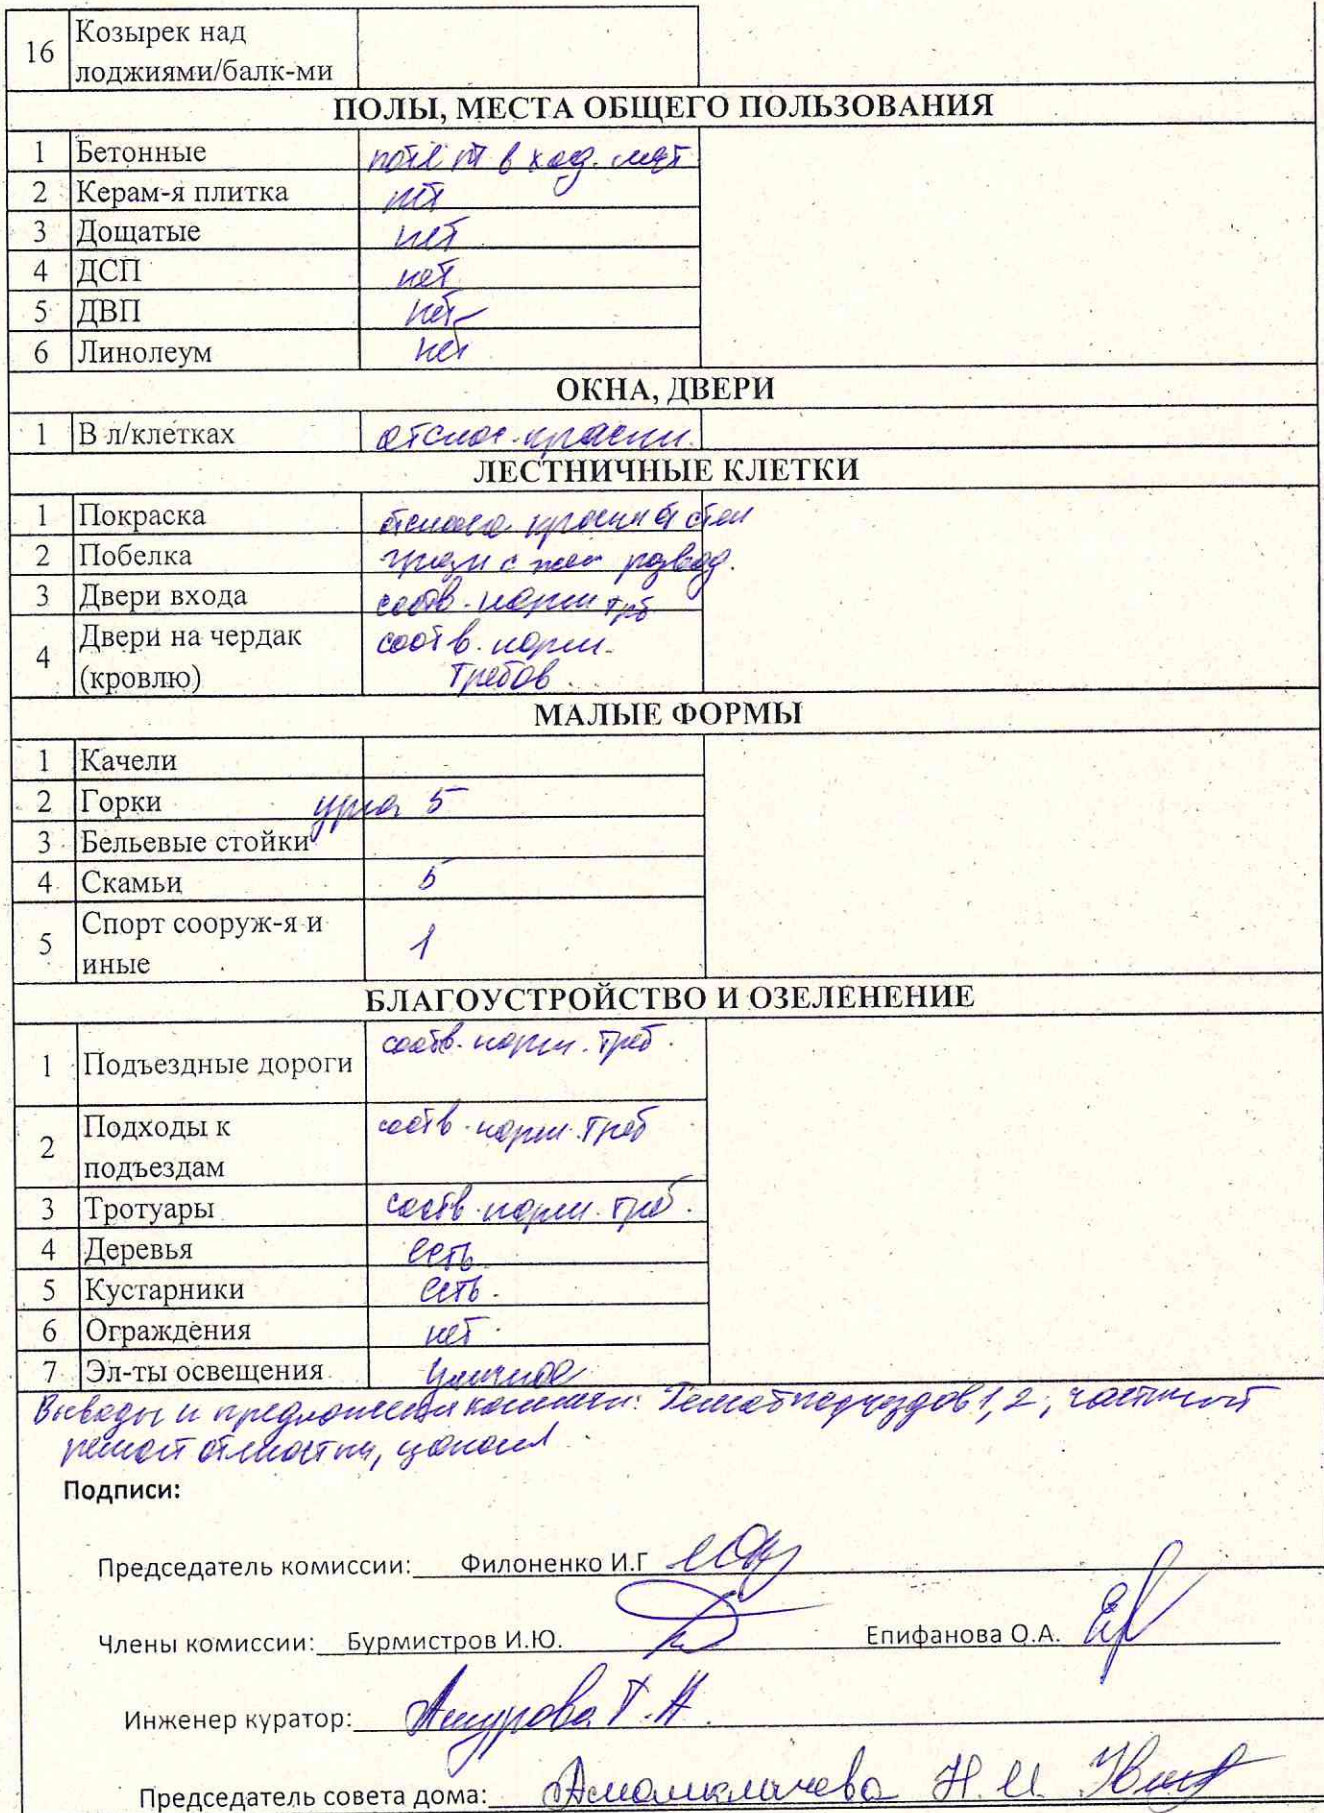 16 Козырек над
лоджиями/балк-ми
ПОЛЫ, МЕСТА ОБЩЕГО ПОЛЬЗОВАНИЯ
1 Бетонные в
2 Керам-я плитка нет
3 Дощатые нет
4 ДСП нет
5 ДВП нет
6 Линолеум нет
ОКНА, ДВЕРИ
1 В л/клетках отслое. краски.
ЛЕСТНИЧНЫЕ КЛЕТКИ
1 Покраска краски от стен
2 Побелка с развод.
3 Двери входа соотв. норм треб
Двери на чердак соотв. норм.
4 (кровлю) Требов.
МАЛЫЕ ФОРМЫ
1 Качели
2 Горки урна 5
3 Бельевые стойки
4 Скамьи 5
5 Спорт сооруж-я и 1
иные
БЛАГОУСТРОЙСТВО И ОЗЕЛЕНЕНИЕ
1 Подъездные дороги соотв. норм. треб.
2 Подходы к соотв. норм. треб
подъездам
3 Тротуары соотв. норм. треб.
4 Деревья есть
5 Кустарники есть.
6 Ограждения нет.
7 Эл-ты освещения уличное
Выводы и предложения комиссии: Ремонт подъездов 1, 2; частичный
ремонт отмостки, цоколя.
Подписи:
Председатель комиссии: Филоненко И.Г
Члены комиссии: Бурмистров И.Ю. Епифанова О.А.
Инженер куратор: Т.А.
Председатель совета дома: Н.И.